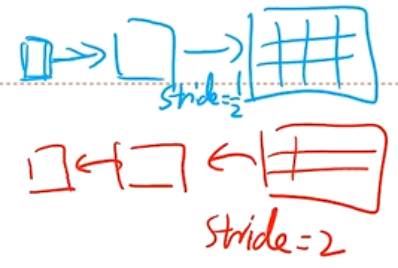 stride=1/2
stride=2